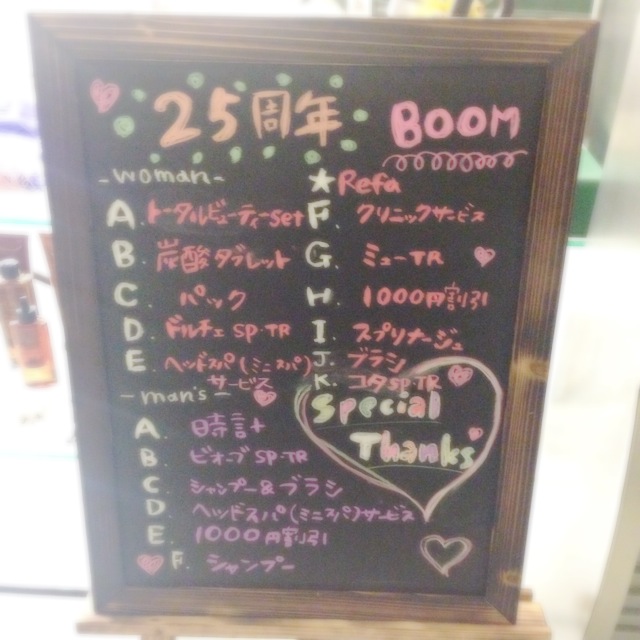 25周年 BOOM
-woman-
A. トータルビューティーset
B. 炭酸タブレット
C. パック
D. ドルチェ SP.TR
E. ヘッドスパ(ミニスパ)サービス
★Refa
F. クリニックサービス
G. ミューTR
H. 1000円割引
I. スプリナージュ
J. ブラシ
K. コタSP.TR
-man's-
A. 時計
B. ビオーブ SP.TR
C. シャンプー&ブラシ
D. ヘッドスパ(ミニスパ)サービス
E. 1000円割引
F. シャンプー
Special
Thanks